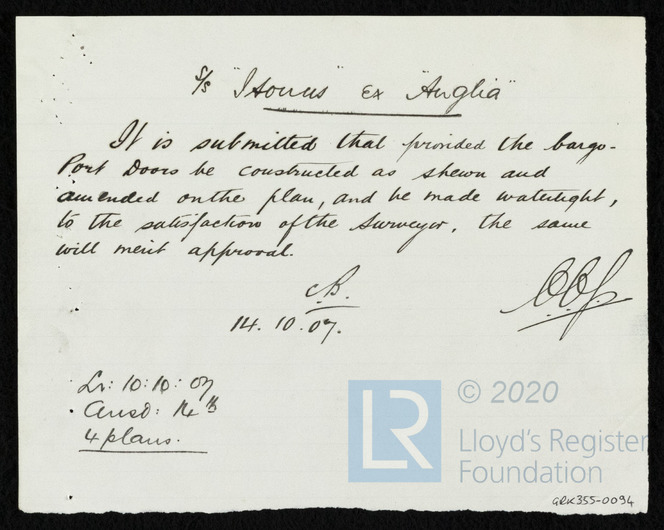 S/s "Isonus" ex "Anglia"
It is submitted that provided the bargo-
Port Doors be constructed as shewn and
amended on the plan, and be made watertight,
to the satisfaction of the Surveyor, the same
will merit approval.
14.10.07.
Lr: 10:10:07
Ansd: 14th
4 plans.
LR
© 2020
Lloyd's Register
Foundation
GRK355-0094